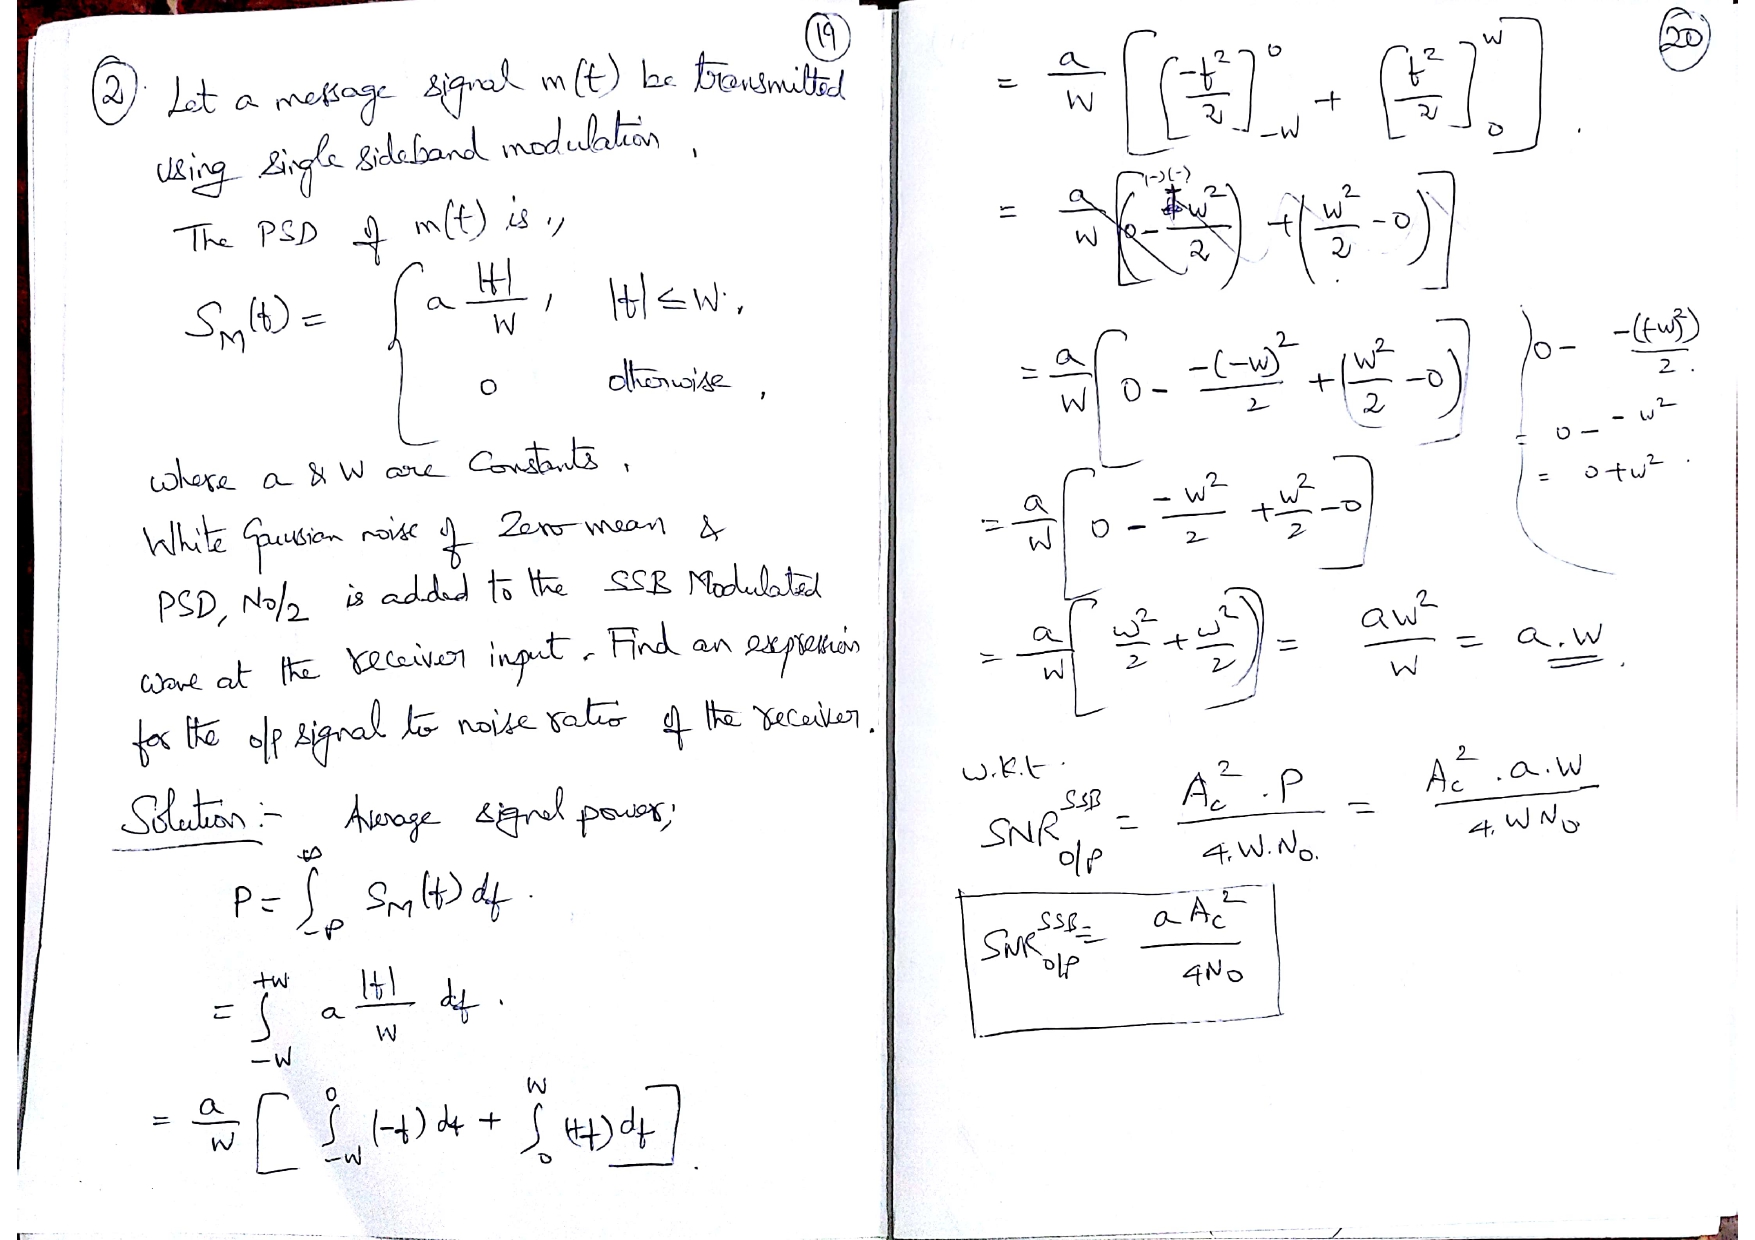 19
2. Let a message signal m(t) be transmitted
using single sideband modulation,
The PSD of m(t) is,,
S_M(f) = { a |f|/W , |f| ≤ W.,
0 otherwise,
where a & W are Constants.
White Gaussian noise of Zero mean &
PSD, No/2 is added to the SSB Modulated
wave at the receiver input. Find an expression
for the o/p signal to noise ratio of the receiver.
Solution :- Average signal power;
P = ∫_{-P}^{∞} S_M(f) df.
= ∫_{-W}^{+W} a |f|/W df.
= a/W [ ∫_{-W}^{0} (-f) df + ∫_{0}^{W} (+f) df ].
20
= a/W [ [-f²/2]_{-W}^{0} + [f²/2]_{0}^{W} ].
(-)(-)
= a/W [ (0 - +w²/2) + (w²/2 - 0) ]
= a/W [ 0 - -(-w)²/2 + (w²/2 - 0) ]
= a/W [ 0 - -w²/2 + w²/2 - 0 ]
= a/W [ w²/2 + w²/2 ] = aw²/W = a.W.
0 - -(+w²)/2.
= 0 - -w²
= 0 + w².
w.k.t.
SNR_{o/p}^{SSB} = Ac².P/4.W.No. = Ac².a.W/4.W No
SNR_{o/p}^{SSB} = a Ac²/4No